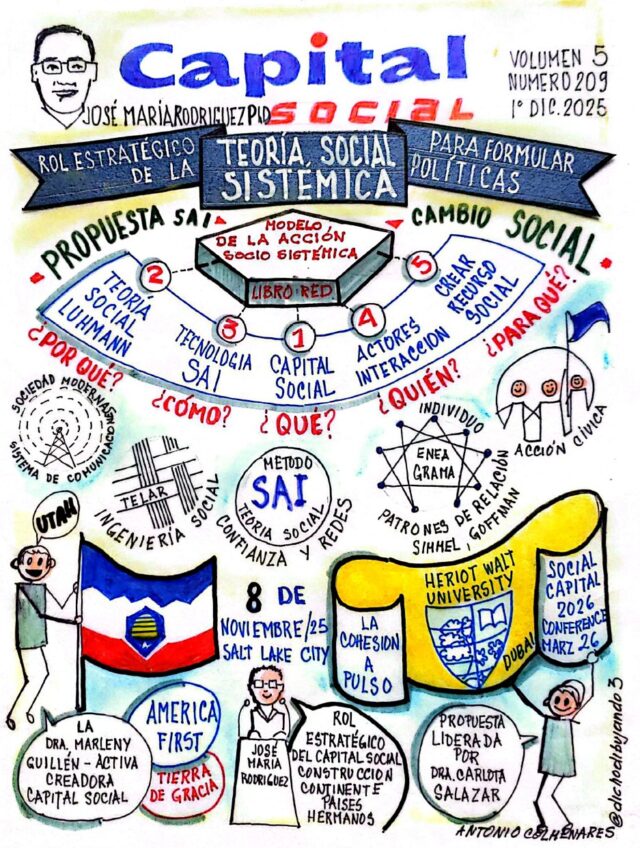 Capital
SOCIAL
JOSÉ MARÍA RODRIGUEZ PhD
VOLUMEN 5
NUMERO 209
1° DIC. 2025
ROL ESTRATÉGICO
DE LA
TEORÍA SOCIAL
SISTÉMICA
PARA FORMULAR
POLÍTICAS
PROPUESTA SAI
CAMBIO SOCIAL
MODELO
DE LA ACCIÓN
SOCIO SISTÉMICA
LIBRO RED
2
TEORÍA
SOCIAL
LUHMANN
¿POR QUÉ?
3
TECNOLOGIA
SAI
¿CÓMO?
1
CAPITAL
SOCIAL
¿QUÉ?
4
ACTORES
INTERACCIÓN
¿QUIÉN?
5
CREAR
RECURSO
SOCIAL
¿PARA QUÉ?
SOCIEDAD MODERNA
SISTEMA DE COMUNICACIÓN
TELAR
INGENIERÍA SOCIAL
METODO
SAI
TEORÍA SOCIAL
CONFIANZA Y REDES
INDIVIDUO
ENEA
GRAMA
PATRONES DE RELACIÓN
SIMMEL, GOFFMAN
ACCIÓN CÍVICA
UTAH
8 DE
NOVIEMBRE/25
SALT LAKE CITY
LA
COHESION
A
PULSO
HERIOT WALT
UNIVERSITY
DUBAI
SOCIAL
CAPITAL
2026
CONFERENCE
MARZ 26
LA
DRA. MARLENY
GUILLÉN - ACTIVA
CREADORA
CAPITAL SOCIAL
AMERICA
FIRST
TIERRA
DE GRACIA
JOSÉ
MARÍA
RODRIGUEZ
ROL
ESTRATÉGICO
DEL CAPITAL SOCIAL
CONSTRUCCION
CONTINENTE
PAISES
HERMANOS
PROPUESTA
LIDERADA
POR
DRA. CARLOTA
SALAZAR
ANTONIO COLMENARES
@dichodibujando3